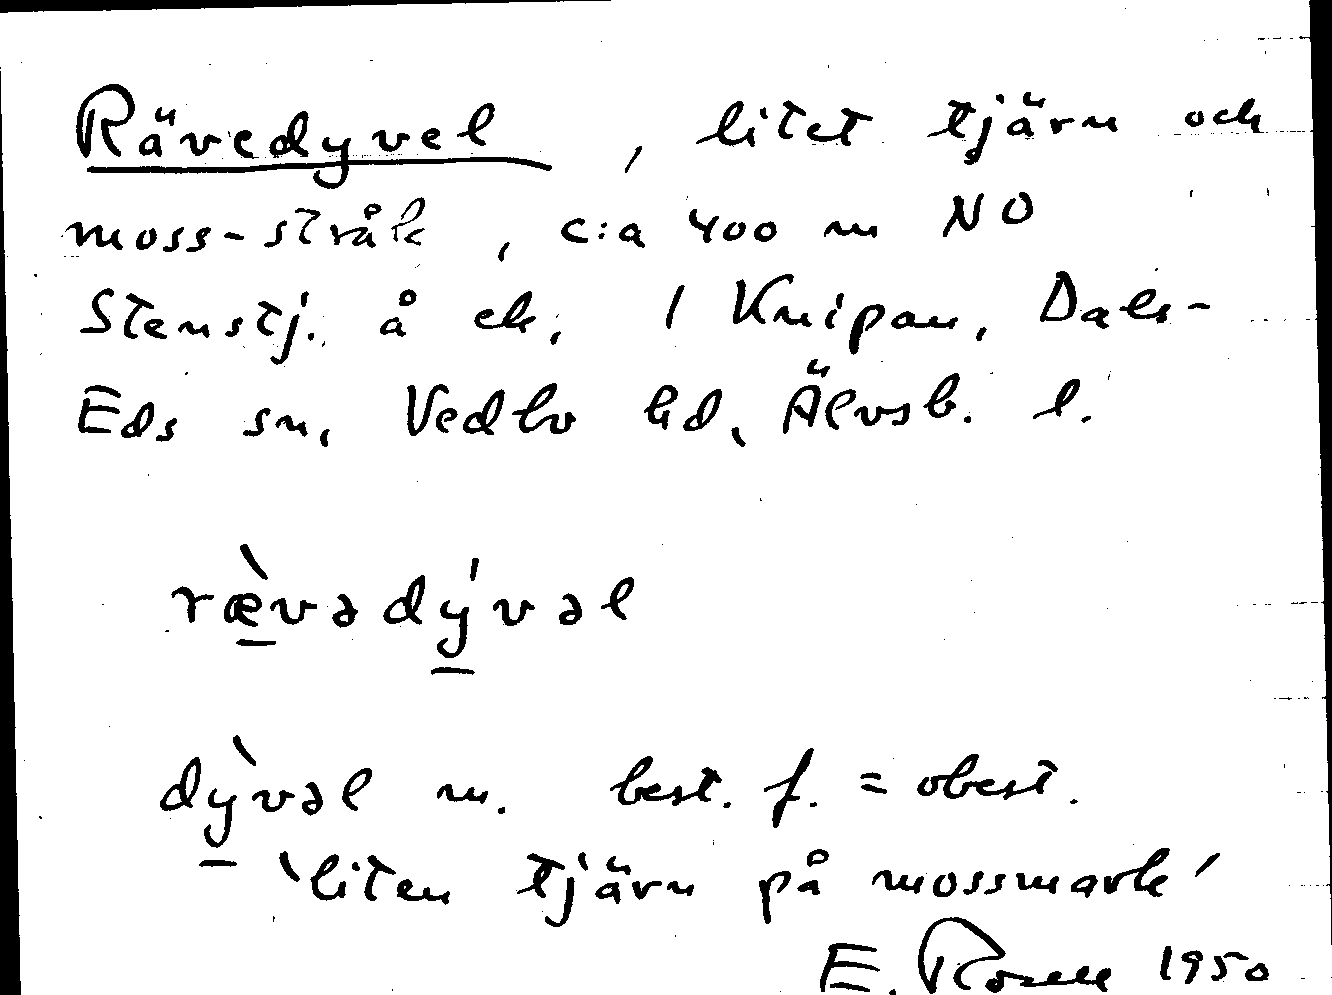 Rävedyvel, litet tjärn och
moss-stråk, c:a 400 m NO
Stenstj. å ek. 1 Knipan, Dals-
Eds sn, Vedbo hd, Älvsb. l.
ræ̱̀vədý̱vəl
dỳ̱vəl m. best. f. = obest.
'liten tjärn på mossmark'
E. 1950